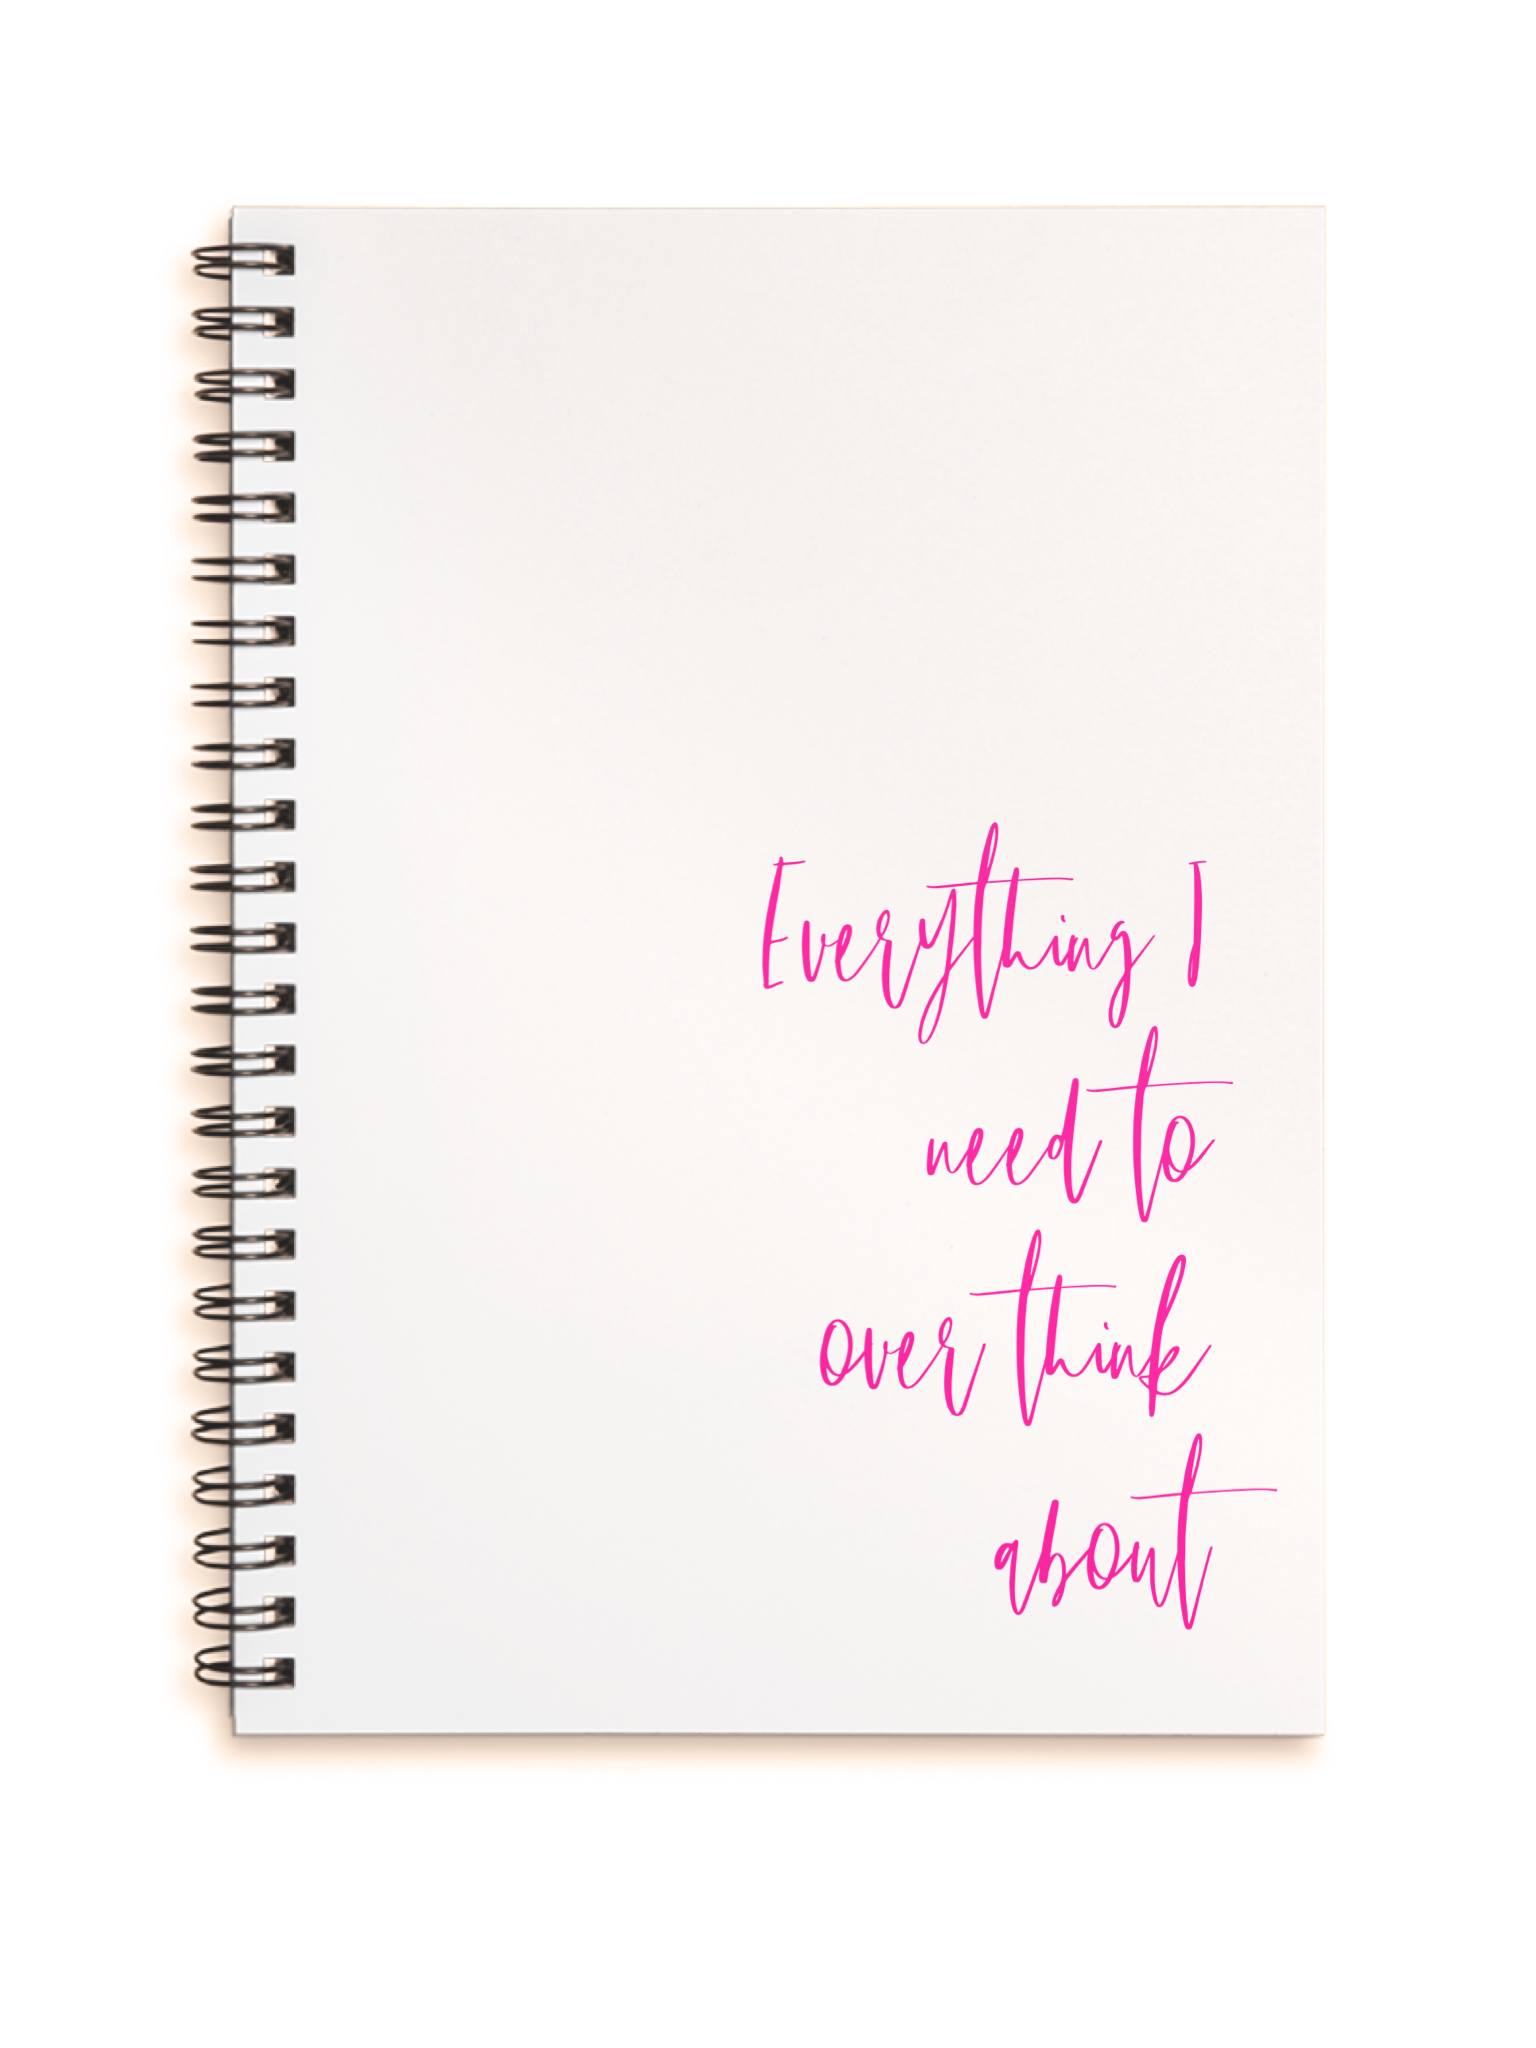 Everything I
need to
over think
about